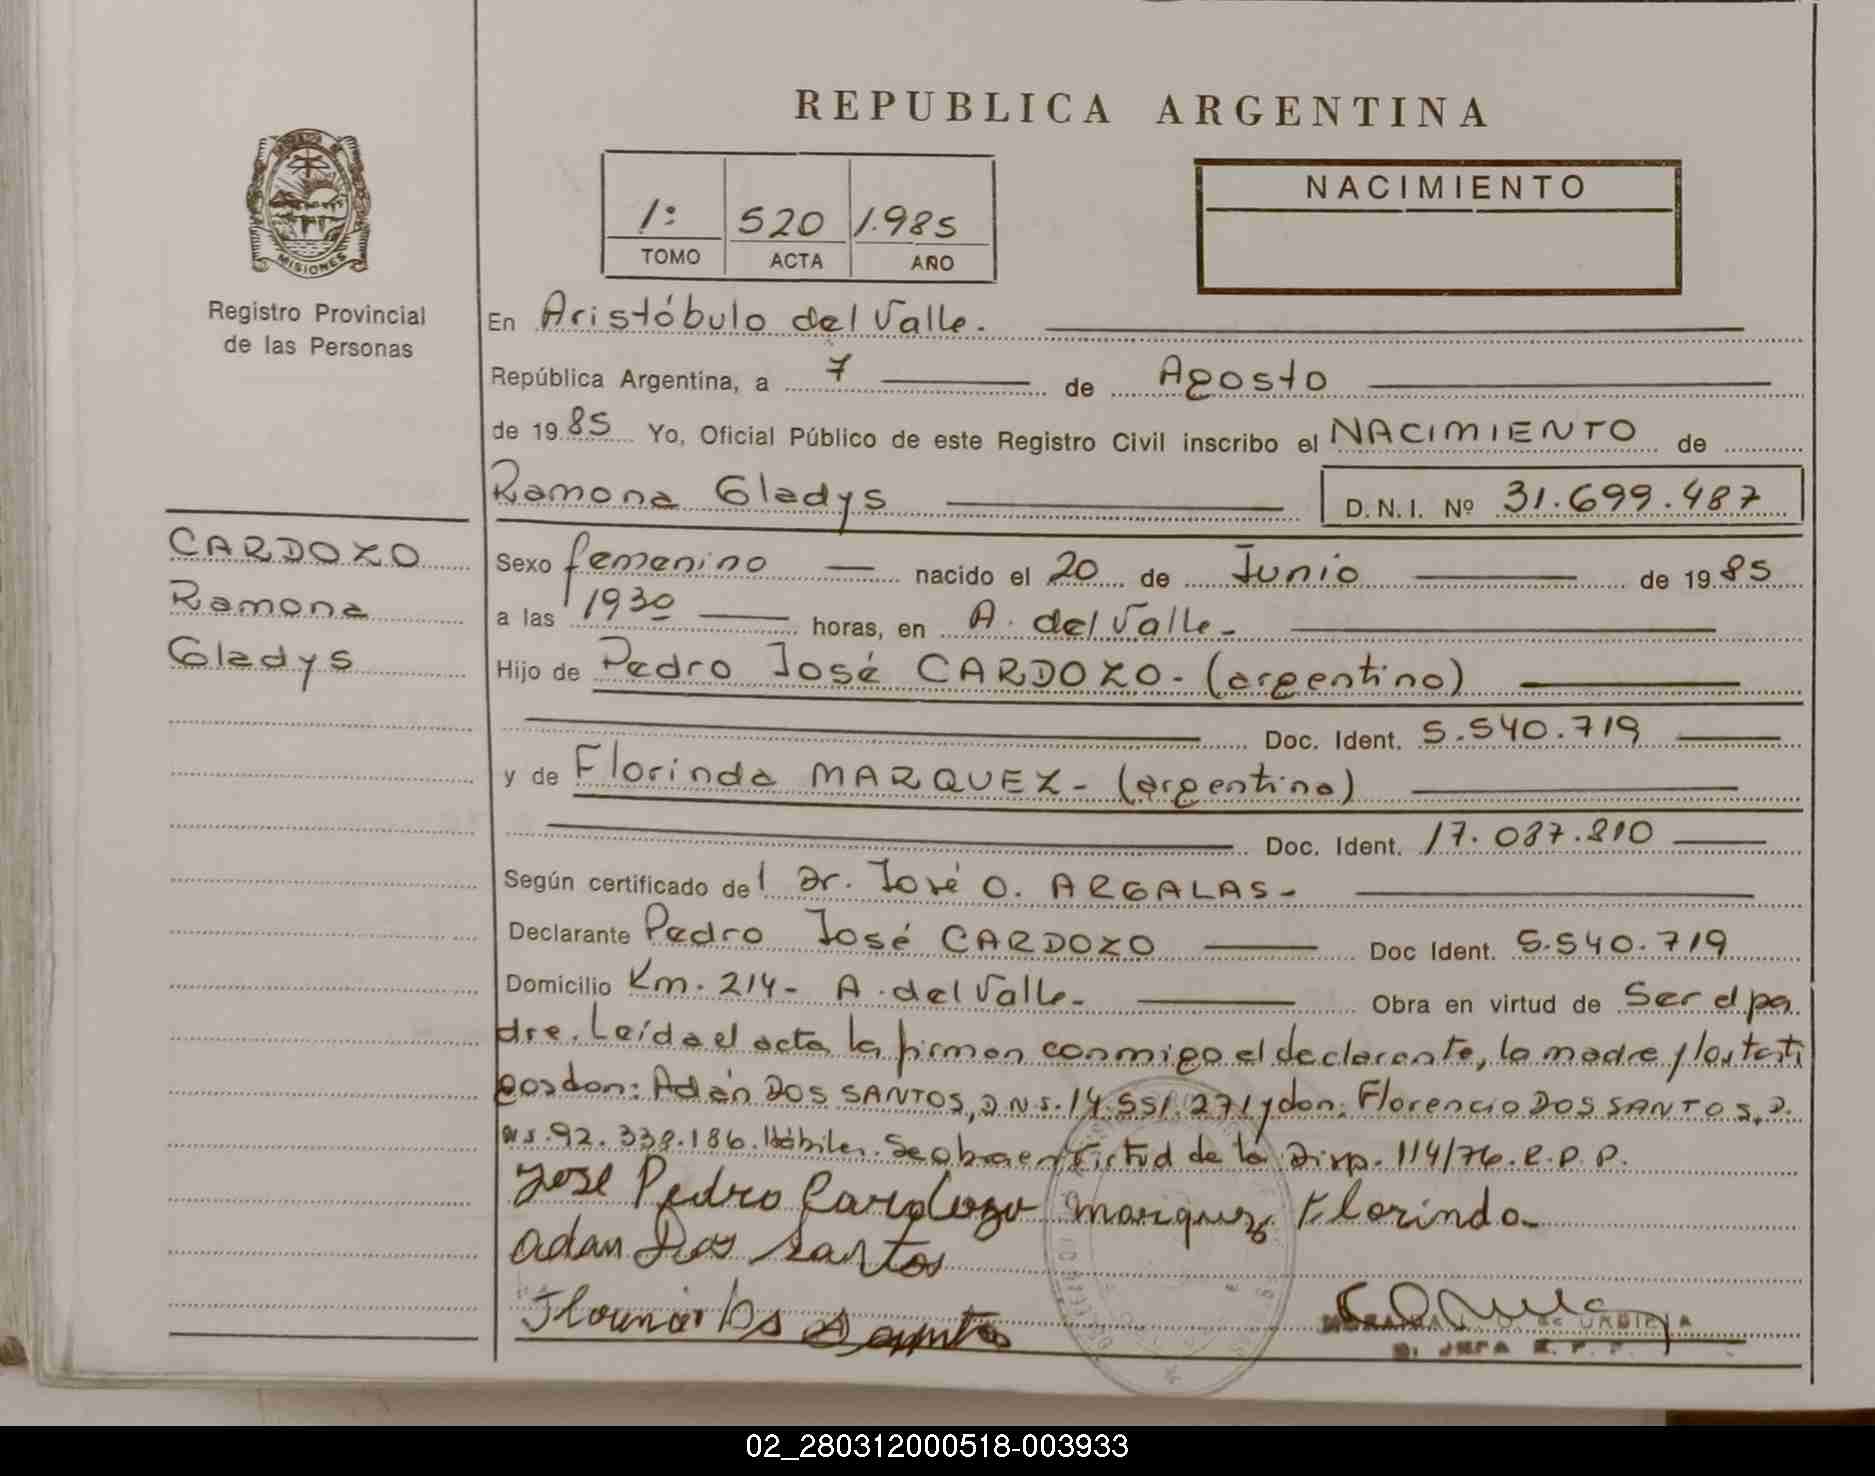 REPUBLICA ARGENTINA
MISIONES
Registro Provincial
de las Personas
1: 520 1.985
TOMO ACTA AÑO
NACIMIENTO
En Aristóbulo del Valle.
República Argentina, a 7 de Agosto
de 1985 Yo, Oficial Público de este Registro Civil inscribo el NACIMIENTO de
Ramona Gladys D.N.I. Nº 31.699.487
CARDOZO
Ramona
Gladys
Sexo femenino nacido el 20 de Junio de 1985
a las 1930 horas, en A. del Valle-
Hijo de Pedro José CARDOZO- (argentino)
Doc. Ident. 5.540.719
y de Florinda MARQUEZ- (argentina)
Doc. Ident. 17.087.810
Según certificado del Dr. José O. ARGALAS-
Declarante Pedro José CARDOZO Doc Ident. 5.540.719
Domicilio Km. 214- A. del Valle- Obra en virtud de Ser el pa
dre. Leída el acta la firman conmigo el declarante, la madre y los testi
gos don: Adán DOS SANTOS, D.N.I. 14.551.271 y don: Florencio DOS SANTOS, D.
N.I. 92.338.186. Hábiles. Se obra en virtud de la Disp. 114/76. R.P.P.
Jose Pedro Cardozo Marquez Florinda
Adan Dos Santos
Dos Santos
JEFA R. P. P.
02_280312000518-003933